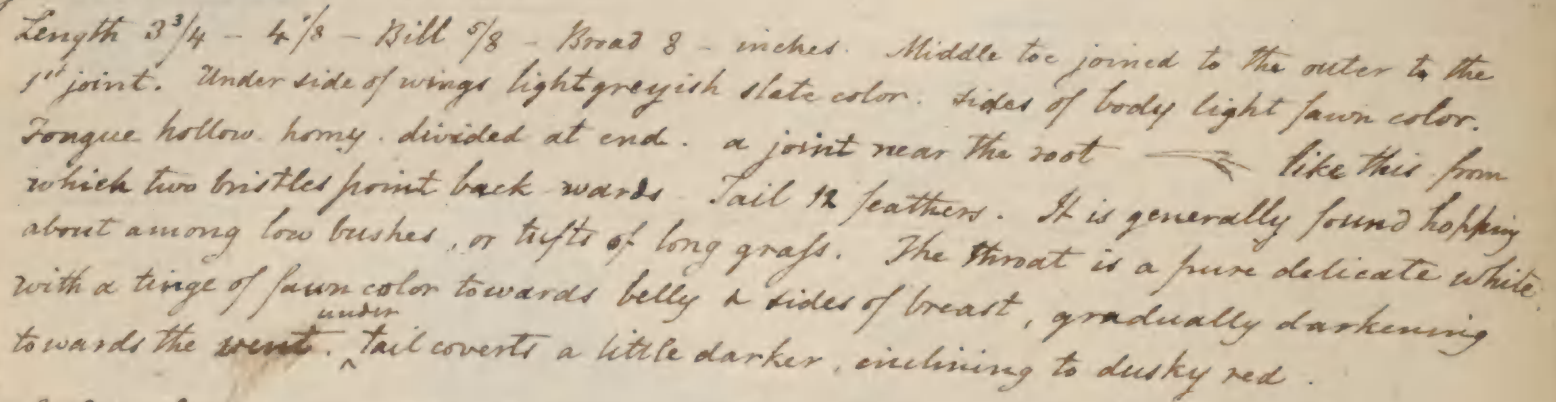 Length 3 3/4 - 4 1/8 - Bill 5/8 - Broad 8 - inches. Middle toe joined to the outer to the
1st joint. Under side of wings light greyish slate color. sides of body light fawn color.
Tongue hollow horny. divided at end. a joint near the root like this from
which two bristles point back-wards. Tail 12 feathers. It is generally found hopping
about among low bushes, or tufts of long grass. The throat is a pure delicate white
with a tinge of fawn color towards belly & sides of breast, gradually darkening
towards the vent. under tail coverts a little darker, inclining to dusky red.